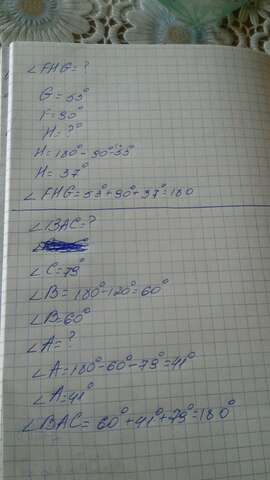 ∠FHG=?
G=53°
F=90°
H=?°
H=180°-90-53°
H=37°
∠FHG=53°+90°+37°=180
∠BAC=?
∠C=79°
∠B=180°-120°=60°
∠B=60°
∠A=?
∠A=180°-60-79°=41°
∠A=41°
∠BAC=60°+41°+79°=180°